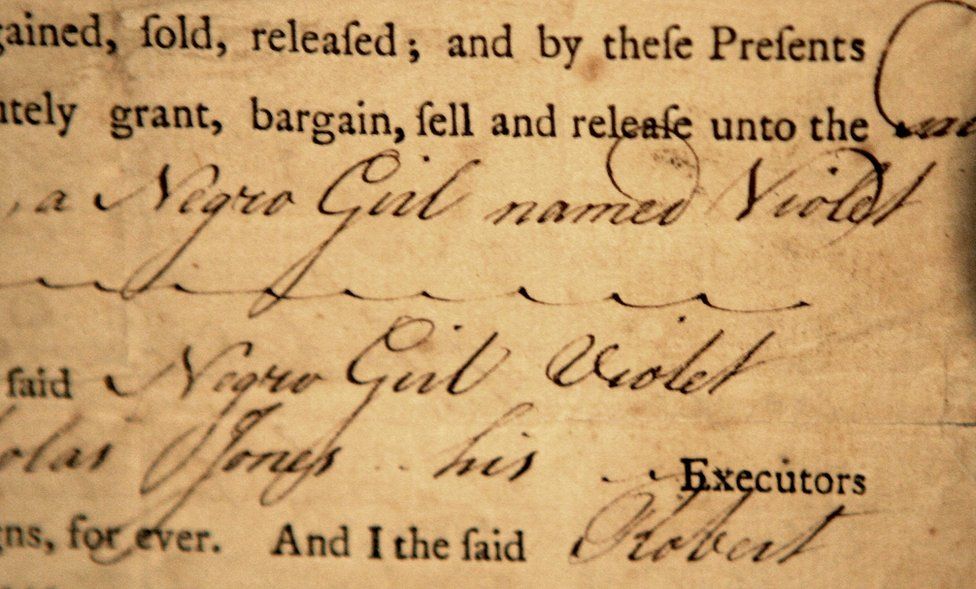 gained, ſold, releaſed; and by theſe Preſents
utely grant, bargain, ſell and releaſe unto the
, a Negro Girl named Violet
ſaid Negro Girl Violet
olas Jones his Executors
gns, for ever. And I the ſaid Robert